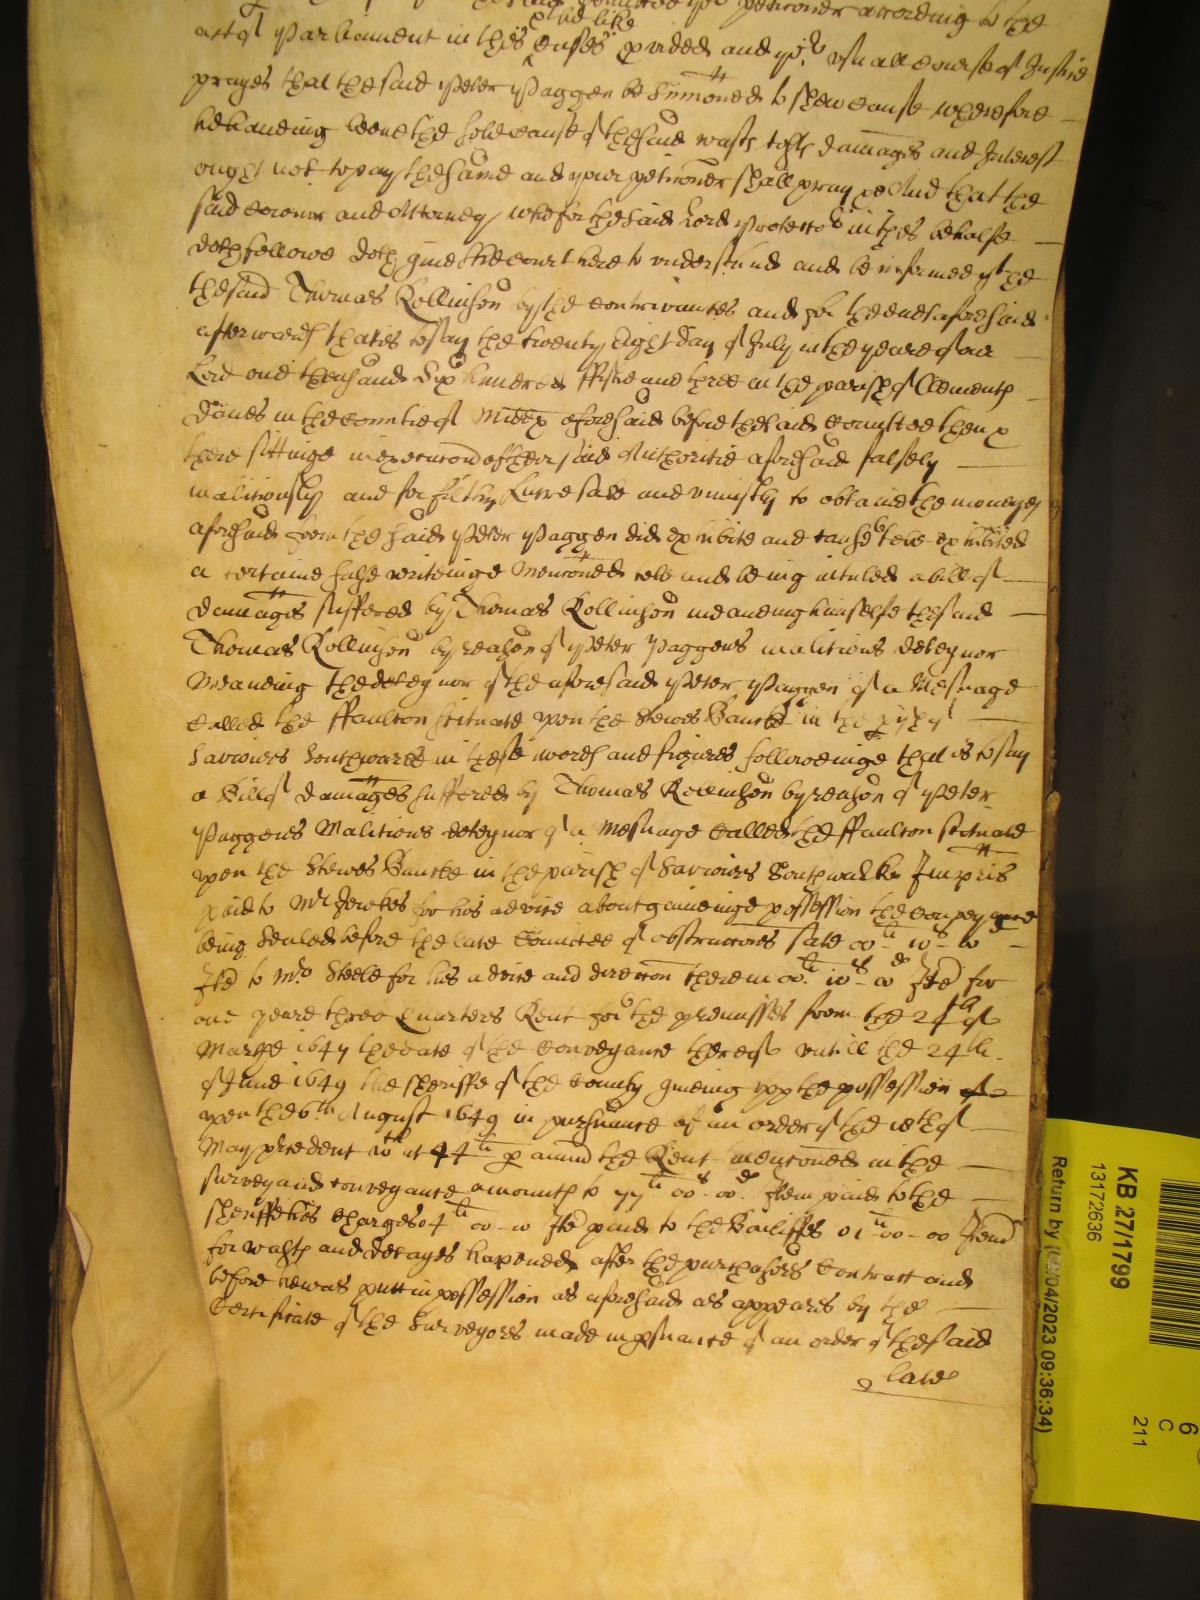 Comittee yor petitioner according to the
p the like
act of Parliament in this Causes p vided and yor usuall course of Justice
prayes that the said Peter Paggen be Sumoned to shew cause wherefore
he haueing beene the sole cause of the said wast losse damages and Interest
ought not to pay the same and your petitioner shall pray &c And that the
said Coroner and Attorney who for the said Lord Protector in this behalfe
doth followe doth giue the Court here to understand and be informed that
the said Thomas Rollinson by the contrivances and for the ends aforesaid
afterwards that is to say the twenty Eight day of July in the yeare of our
Lord one thousand Six hundred ffiftie and three in the parish of Clements
Danes in the Countie of Middx aforesaid before the said Comittee then &
there sittinge in execucon of their said Authoritie aforesaid falsely
malitiously and for filthy Lucre sake and uniustly to obtaine the moneyes
aforesaid from the said Peter Paggen did exhibite and cause to be exhibited
a certaine false writeinge menconed to be and being intuled a bill of
damages suffered by Thomas Rollinson meaneing himselfe the said
Thomas Rollinson by reason of Peter Paggens malitious deteynor
Meaneing the deteynor of the aforesaid Peter Paggen of a Mesuage
Called the ffaulcon scituate upon the Stewes Bancke in the pish of
Saviours Southwarke in these words and figures followeinge that is to say
a Bill of damages suffered by Thomas Rollinson by reason of Peter
Paggens Malitious deteynor of a Mesuage called the ffaulcon scituate
upon the Stewes Bancke in the parish of Saviours Southwarke Impris
paid to Mr for his advice about gaineinge possession the Conveyance
being Sealed before the late Comittee of obstruccons sate 00li 10s 00
Itm to Mr Steele for his advice and direccon therein 00li 10s 00d Itm for
one yeare three Quarters Rent for the premisses from the 24th of
March 1647 the date of the Conveyance thereof untill the 24th
of June 1649 the Sheriffe of the County giueing upp the possession of
upon the 6th August 1649 in pursuance of an order of the 10th of
May precedent at 44li p annu the Rent menconed in the
survey and conveyance amounts to 77li 00s 00d Item paid to the
Sheriffe his charges 04li 00 - 00 Itm paid to the Bailiffes 01li 00 - 00 Item
for wasts and decayes hapened after the purchasers Contract and
before he was putt in possession as aforesaid as appeares by the
Certificate of the Surveyors made in psuance of an order of the said
late
KB 27/1799
13172636
Return by (04/2023 09:36:34)
6
C
211